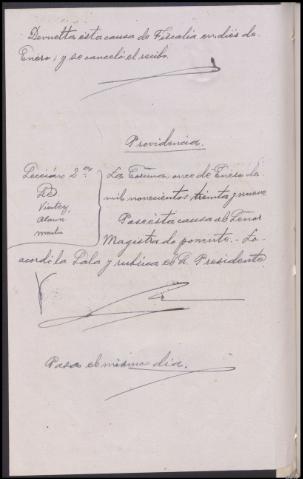 Devuelta esta causa de Fiscalia en diez de
Enero, y se canceló el recibo.
Providencia.
Sección 2ª
La Coruña, once de Enero de
mil novecientos treinta y nueve
Pase esta causa al Señor
Magistrado ponente.- Lo
acordó la Sala y rubrica el Sr. Presidente
Pasa el mismo dia.